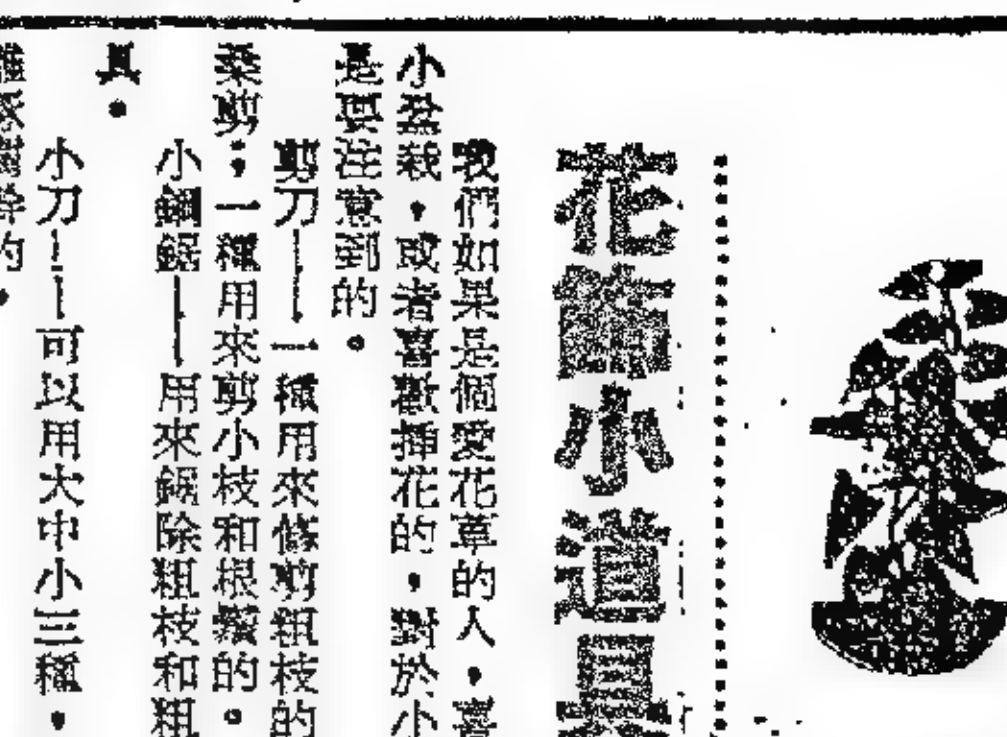 花飾小道具
我們如果是個愛花草的人，喜
小盆栽，或者喜歡插花的，對於小
是要注意到的。
剪刀——一種用來修剪粗枝的
剪；一種用來剪小枝和根鬚的。
小鋼鋸——用來鋸除粗枝和粗
具。
小刀——可以用大中小三種，
的，